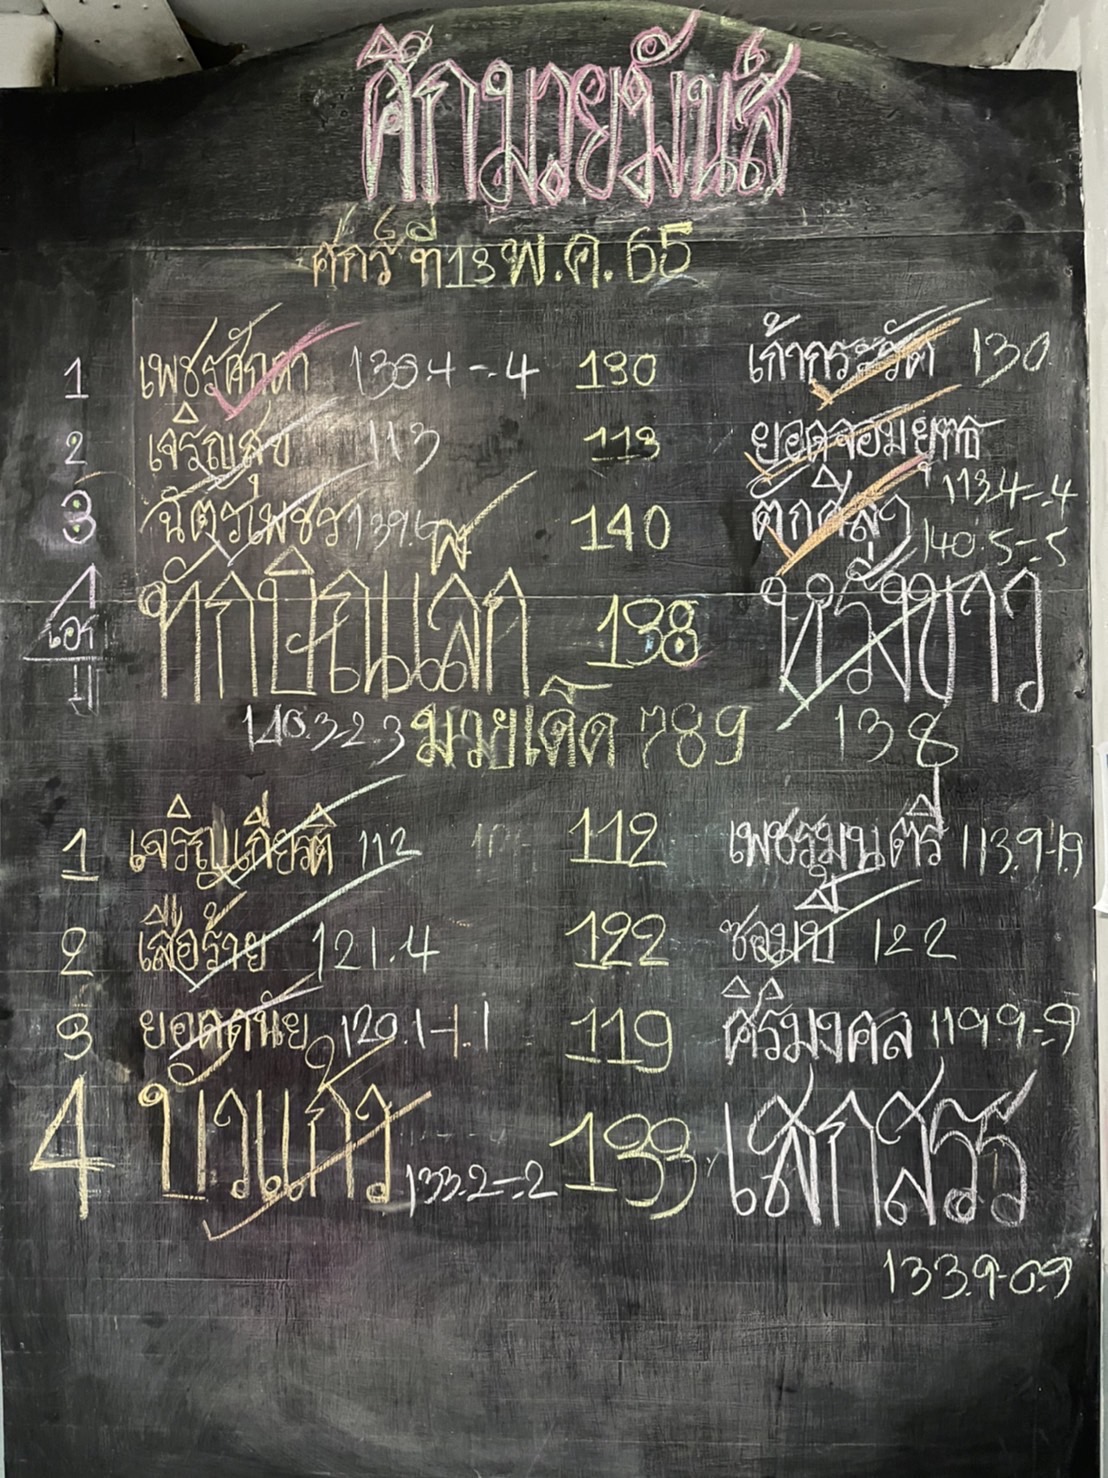 ศึกมวยมันส์
ศุกร์ ที่ 13 พ.ค. 65
1 เพชรศักดา 130.4-.4 130 เก้ากะรัต 130
2 เจริญสุข 113 113 ยอดจอมยุทธ 113.4-.4
3 ฉัตรเพชร 139.6 140 ตักศิลา 140.5-.5
4 เอก ทักษิณเล็ก 138 หรั่งขาว
140.3-2.3 มวยเด็ด 789 138
1 เจริญเกียรติ 112 112 เพชรมนตรี 113.9-1.9
2 เสือร้าย 121.4 122 ซอมบี้ 122
3 ยอดดนัย 120.1-1.1 119 ศิริมงคล 119.9-.9
4 บัวแก้ว 133.2-.2 133 เสกสรร
133.9-0.9